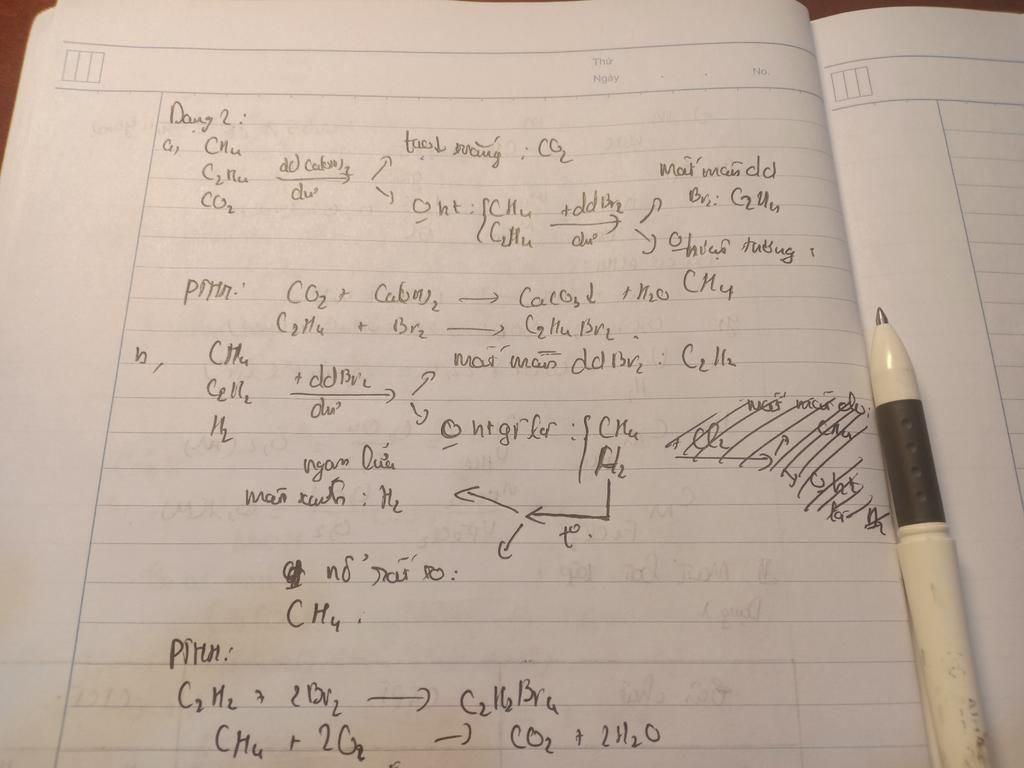 Thứ
Ngày . . No.
Dạng 2:
a, CH4
C2H4
CO2
dd Ca(OH)2
dư
tạo ↓ trắng : CO2
O ht : { CH4
C2H4
+ddBr2
dư
mất màu dd
Br2: C2H4
O hiện tường :
CH4
PTHH: CO2 + Ca(OH)2 → CaCO3↓ + H2O
C2H4 + Br2 → C2H4Br2.
b, CH4
C2H2
H2
+ddBr2
dư
mất màu ddBr2 : C2H2
O ht : { CH4
H2
+ Cl2
mất màu
CH4
t°.
ngọn lửa
màu xanh : H2
nổ rất to:
CH4.
PTHH:
C2H2 + 2Br2 → C2H2Br4
CH4 + 2O2 → CO2 + 2H2O